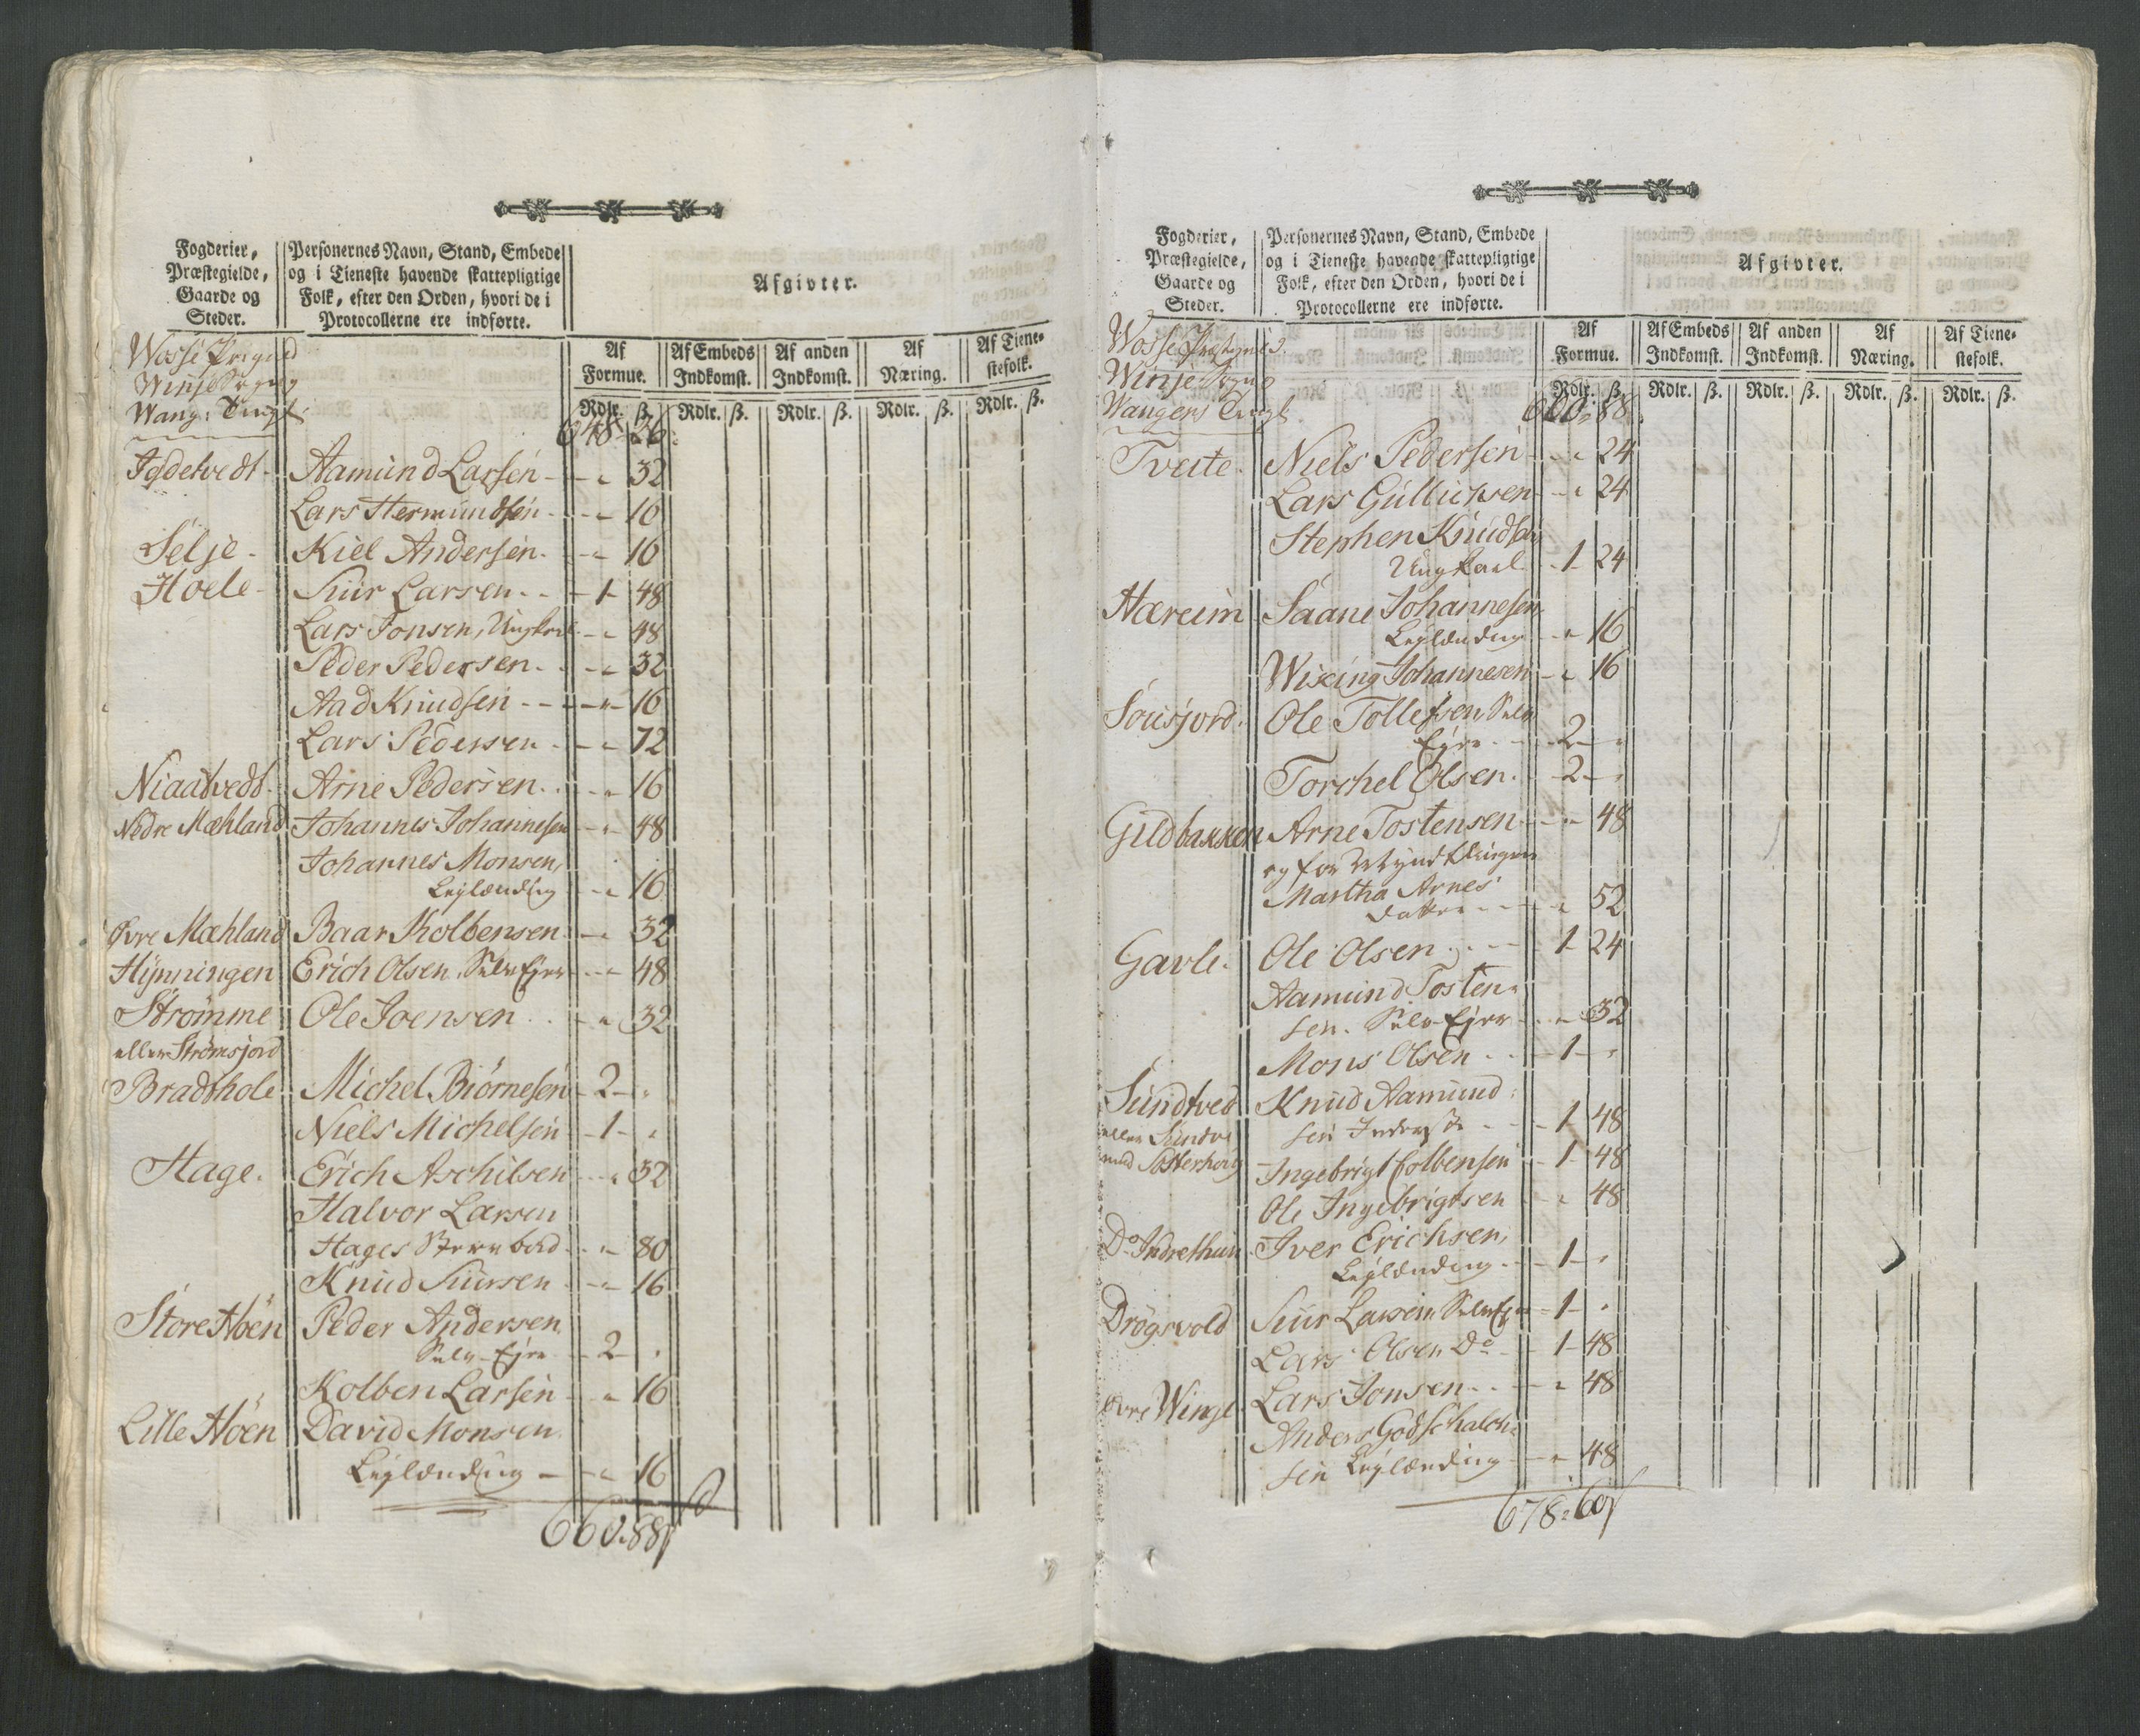 Fogderier,
Præstegielde,
Gaarde og
Steder.
Personernes Navn, Stand, Embede
og i Tieneste havende skattepligtige
Folk, efter den Orden, hvori de i
Protocollerne ere indførte.
Afgivter.
Af Formue. Af Embeds Indkomst. Af anden Indkomst. Af Næring. Af Tienestefolk.
Rdlr. ß. Rdlr. ß. Rdlr. ß. Rdlr. ß. Rdlr. ß.
Wosse
Winje Sogn
Wang: Tingl:
648 26
Aamund Larsen - - " 32
Lars Hermundsen - - " 16
Selje - Kiel Andersen - - " 16
Hoele - Siur Larsen - - 1 - 48
Lars Jonsen, Ungkarl - " 48
Peder Pedersen - - " 32
Aad Knudsen - - - " 16
Lars Pedersen - - " 72
Niaatvedt - Arne Pedersen - - " 16
Nedre Mæhland Johannes Johannesen - " 48
Johannes Monsen,
Leylænding - " 16
Øvre Mæhland Baar Kolbensen - " 32
Hynningen Erich Olsen Selv Ejer - " 48
Strømme Ole Joensen - - " 32
eller Strømsjord
Bradthole Michel Biørnesen - 2 - "
Niels Michelsen - 1 - "
Hage. Erich Aschilsen - - " 32
Halvor Larsen
Hages - - " 80
Knud Siursen - - " 16
Store Høen Peder Andersen
Selv-Ejer - 2 - "
Kolben Larsen - " 16
Lille Høen David Monsen
Leylænding - - " 16
660. 88
Fogderier,
Præstegielde,
Gaarde og
Steder.
Personernes Navn, Stand, Embede
og i Tieneste havende skattepligtige
Folk, efter den Orden, hvori de i
Protocollerne ere indførte.
Afgivter.
Af Formue. Af Embeds Indkomst. Af anden Indkomst. Af Næring. Af Tienestefolk.
Rdlr. ß. Rdlr. ß. Rdlr. ß. Rdlr. ß. Rdlr. ß.
Wosse
Winje Sogn
Wangens Tingl:
660. 88.
Tveite. Niels Pedersen - - " 24
Lars Gullichsen - " 24
Stephen Knudsen
Ungkarl - 1 - 24
Hæreim Saane Johannesen
Leylænding - " 16
Wiking Johannesen - " 16
Ole Tollefsen Selv
Ejer - - 2 - "
Torchel Olsen - 2 - "
Gildbakken Arne Tostensen - - " 48
og for Myndtlingen
Martha Arnes
datter - - - " 52
Gavle. Ole Olsen - - - 1 - 24
Aamund Tosten-
sen. Selv-Ejer - " 32
Mons Olsen - - 1 - "
Sundtved Knud Aamund:
eller sen Inderste - - 1 - 48
Ingebrigt Colbensen - 1 - 48
Ole Ingebrigtsen - " 48
Do Indrethun Iver Erichsen,
Leylænding - - 1 - "
Drøgsvold Siur Larsen Selv Ejer - 1 - "
Lars Olsen Do - 1 - 48
Øvre Winje Lars Jonsen - - - " 48
Anders Godschalch-
sen Leylænding - " 48
678. 60